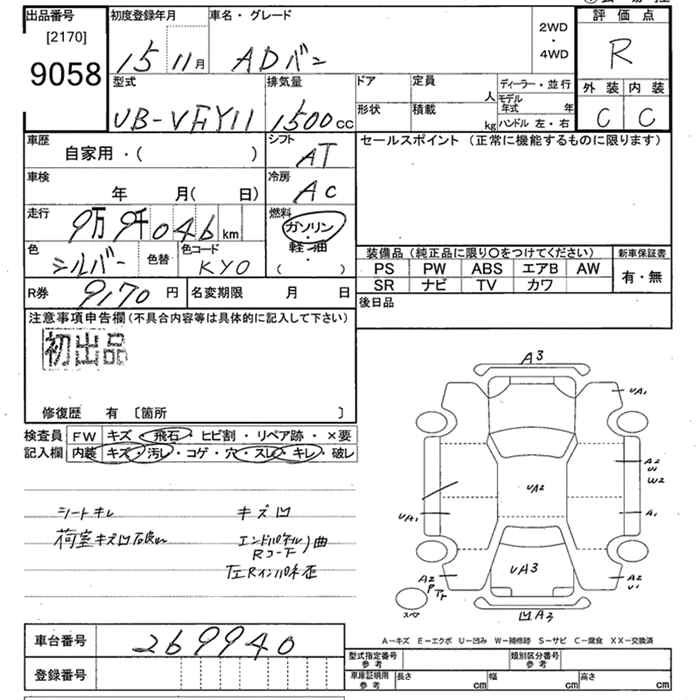 出品番号
[2170]
9058
初度登録年月
15 11月
車名・グレード
ADバン
2WD
・
4WD
評価点
R
外装 内装
C C
型式
UB-VFY11
排気量
1500cc
ドア
形状
定員
人
積載
kg
ディーラー・並行
モデル年式 年
ハンドル 左・右
車歴
自家用・( )
シフト
AT
セールスポイント (正常に機能するものに限ります)
車検
年 月( 日)
冷房
AC
走行
9万9千046km
燃料
ガソリン
・
軽・油
( )
色
シルバー
色替
色コード
KY0
装備品 (純正品に限り○をつけてください)
新車保証書
PS PW ABS エアB AW
有・無
SR ナビ TV カワ
R券 9,170 円
名変期限 月 日
後日品
注意事項申告欄 (不具合内容等は具体的に記入して下さい)
初出品
修復歴 有 〔箇所 〕
検査員 FW キズ・飛石・ヒビ割・リペア跡・×要
記入欄 内装 キズ・汚し・コゲ・穴・スレ・キレ・破レ
シートキレ
キズ凹
荷室キズ凹
エンドパネル
Rコーナー
曲
左Rインパネ歪
A3
UA1
A2
U1
W2
UA2
UA1
A1
UA3
A2
P
Tr
A2
U1
凹A3
スペア
A－キズ E－エクボ U－凹み W－補修跡 S－サビ C－腐食 XX－交換済
車台番号 269940
登録番号
型式指定番号
参考
類別区分番号
参考
車庫証明用
参考
長さ cm
幅 cm
高さ cm